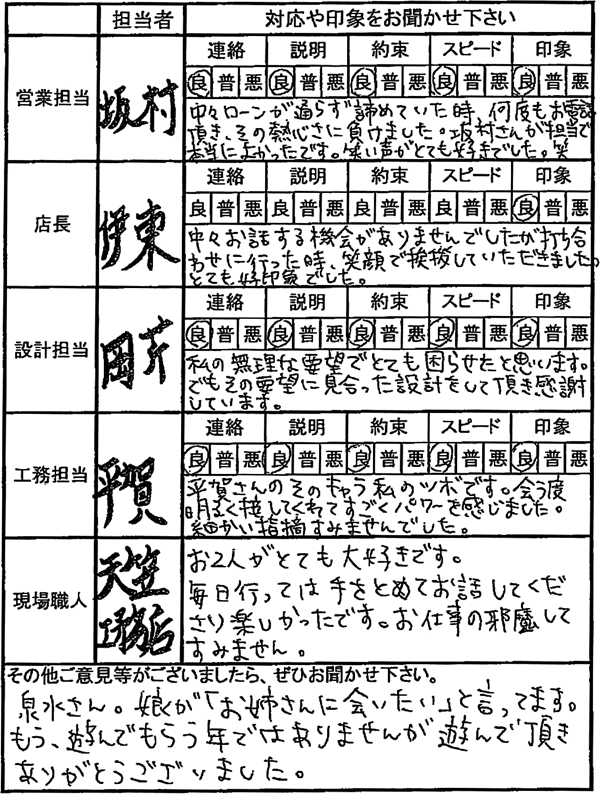 担当者 対応や印象をお聞かせ下さい
連絡 説明 約束 スピード 印象
営業担当 坂村 良 普 悪 良 普 悪 良 普 悪 良 普 悪 良 普 悪
中々ローンが通らず諦めていた時、何度もお電話
頂き、その熱心さに負けました。坂村さんが担当で
本当によかったです。笑い声がとても好きでした。笑
連絡 説明 約束 スピード 印象
店長 伊東 良 普 悪 良 普 悪 良 普 悪 良 普 悪 良 普 悪
中々お話する機会がありませんでしたが打ち合
わせに行った時、笑顔で挨拶していただきました。
とても好印象でした。
連絡 説明 約束 スピード 印象
設計担当 岡芹 良 普 悪 良 普 悪 良 普 悪 良 普 悪 良 普 悪
私の無理な要望でとても困らせたと思います。
でもその要望に見合った設計をして頂き感謝
しています。
連絡 説明 約束 スピード 印象
工務担当 平賀 良 普 悪 良 普 悪 良 普 悪 良 普 悪 良 普 悪
平賀さんのそのキャラ私のツボです。会う度
明るく接してくれてすごくパワーを感じました。
細かい指摘すみませんでした。
現場職人 天笠
工務店
お2人がとても大好きです。
毎日行っては手をとめてお話してくだ
さり楽しかったです。お仕事の邪魔して
すみません。
その他ご意見等がございましたら、ぜひお聞かせ下さい。
泉水さん。娘が「お姉さんに会いたい」と言ってます。
もう、遊んでもらう年ではありませんが遊んで頂き
ありがとうございました。